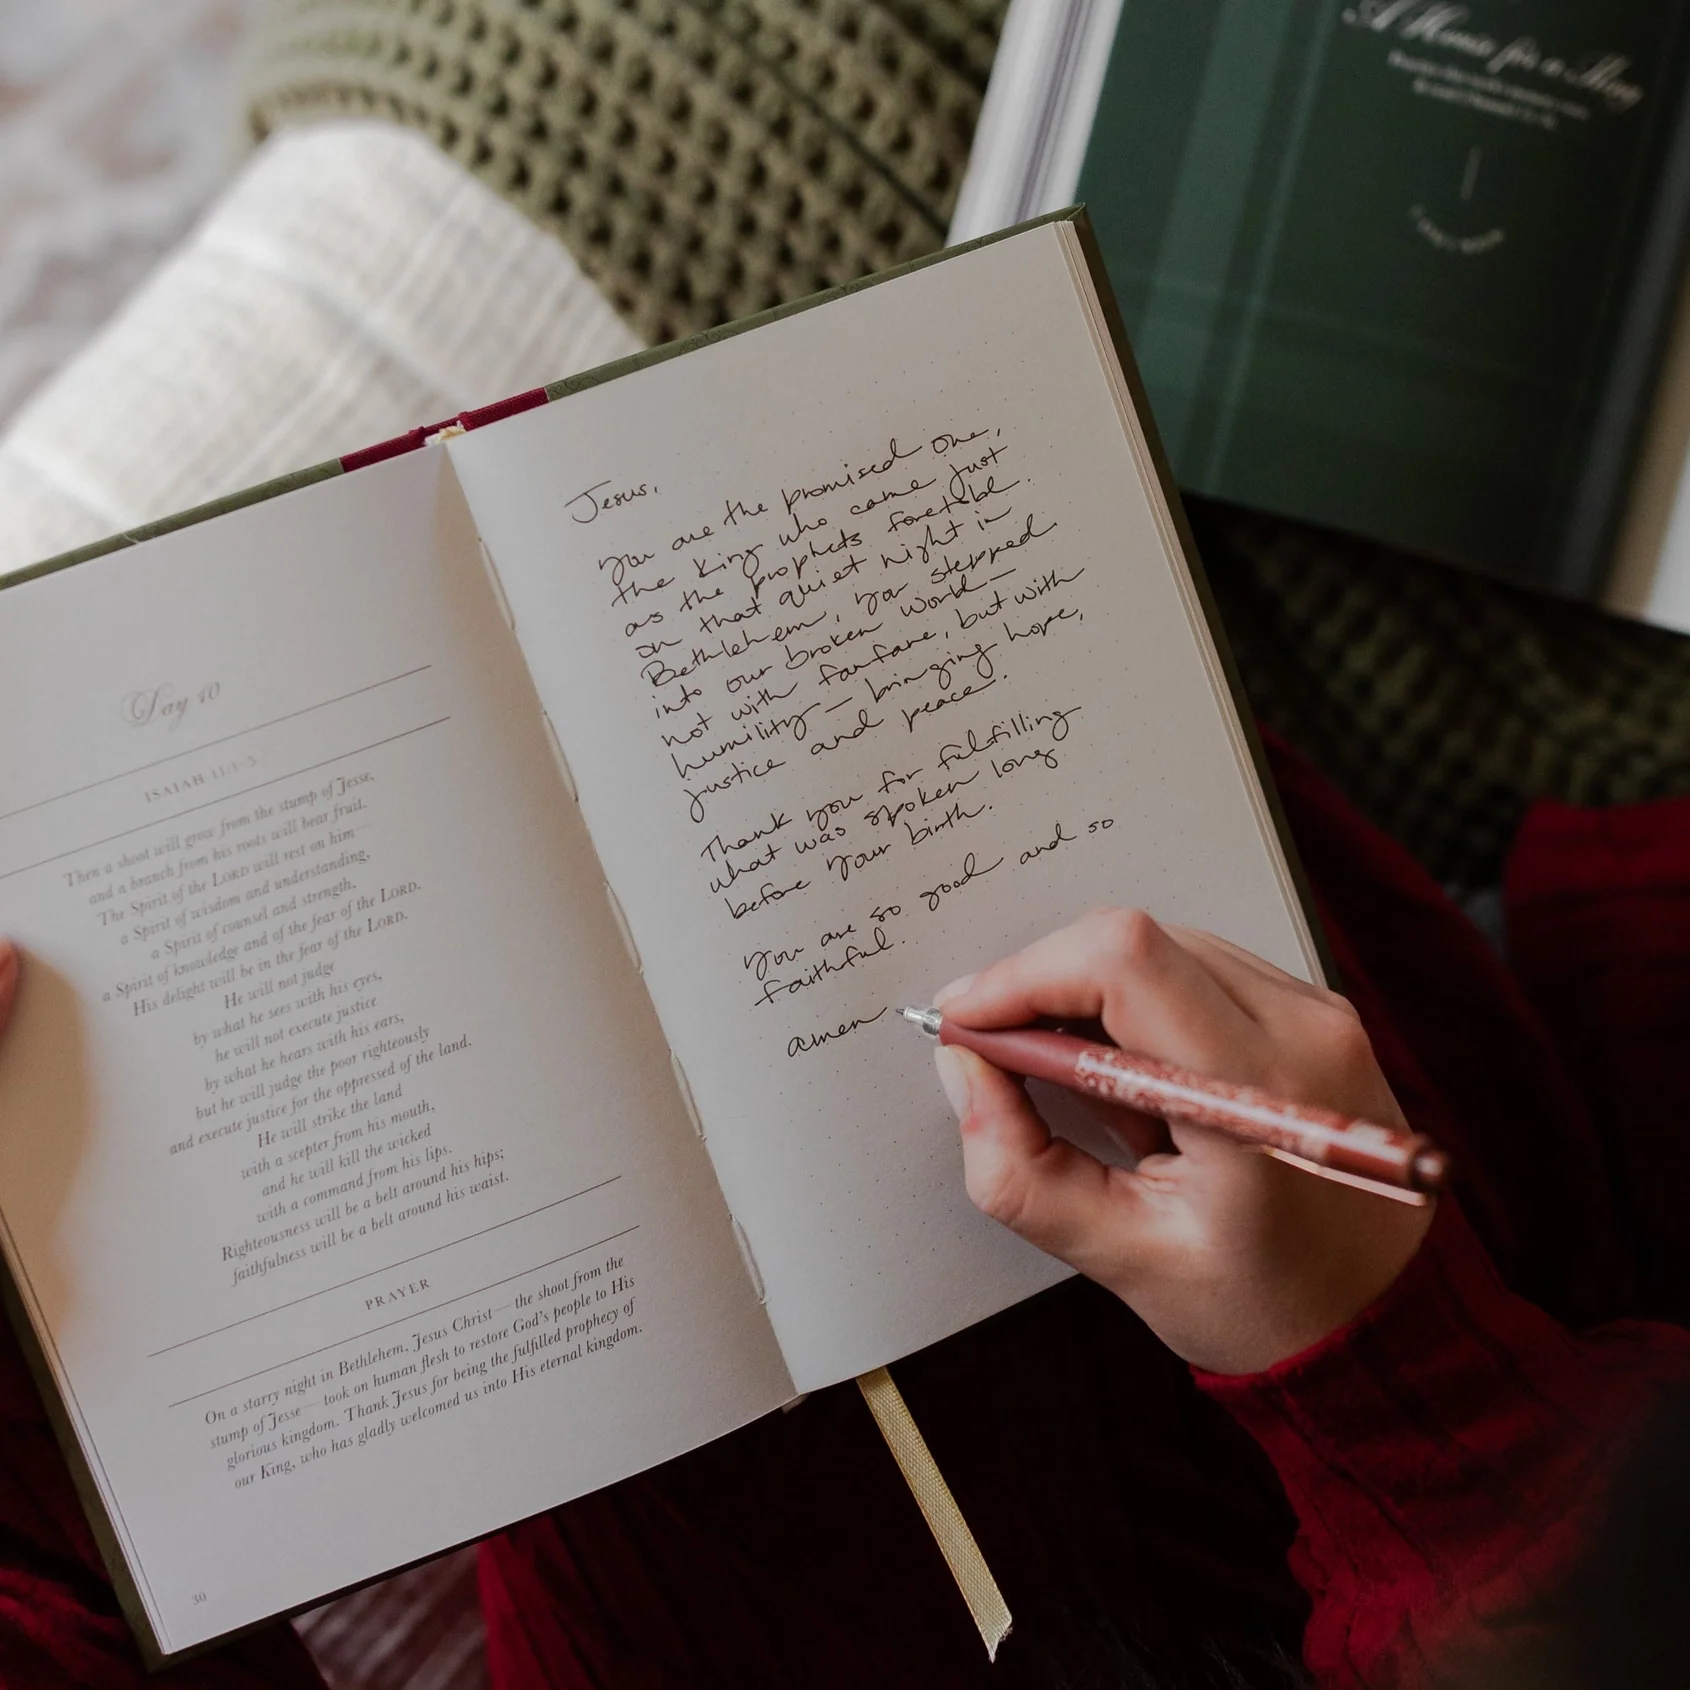 Day 10
ISAIAH 11:1-5
Then a shoot will grow from the stump of Jesse,
and a branch from his roots will bear fruit.
The Spirit of the LORD will rest on him—
a Spirit of wisdom and understanding,
a Spirit of counsel and strength,
a Spirit of knowledge and of the fear of the LORD.
His delight will be in the fear of the LORD.
He will not judge
by what he sees with his eyes,
he will not execute justice
by what he hears with his ears,
but he will judge the poor righteously
and execute justice for the oppressed of the land.
He will strike the land
with a scepter from his mouth,
and he will kill the wicked
with a command from his lips.
Righteousness will be a belt around his hips;
faithfulness will be a belt around his waist.
PRAYER
On a starry night in Bethlehem, Jesus Christ—the shoot from the
stump of Jesse—took on human flesh to restore God's people to His
glorious kingdom. Thank Jesus for being the fulfilled prophecy of
our King, who has gladly welcomed us into His eternal kingdom.
30
Jesus,
You are the promised one,
the King who came just
as the prophets foretold.
on that quiet night in
Bethlehem, you stepped
into our broken world—
not with fanfare, but with
humility— bringing hope,
justice and peace.
Thank you for fulfilling
what was spoken long
before your birth.
You are so good and so
faithful.
amen
A House for a King